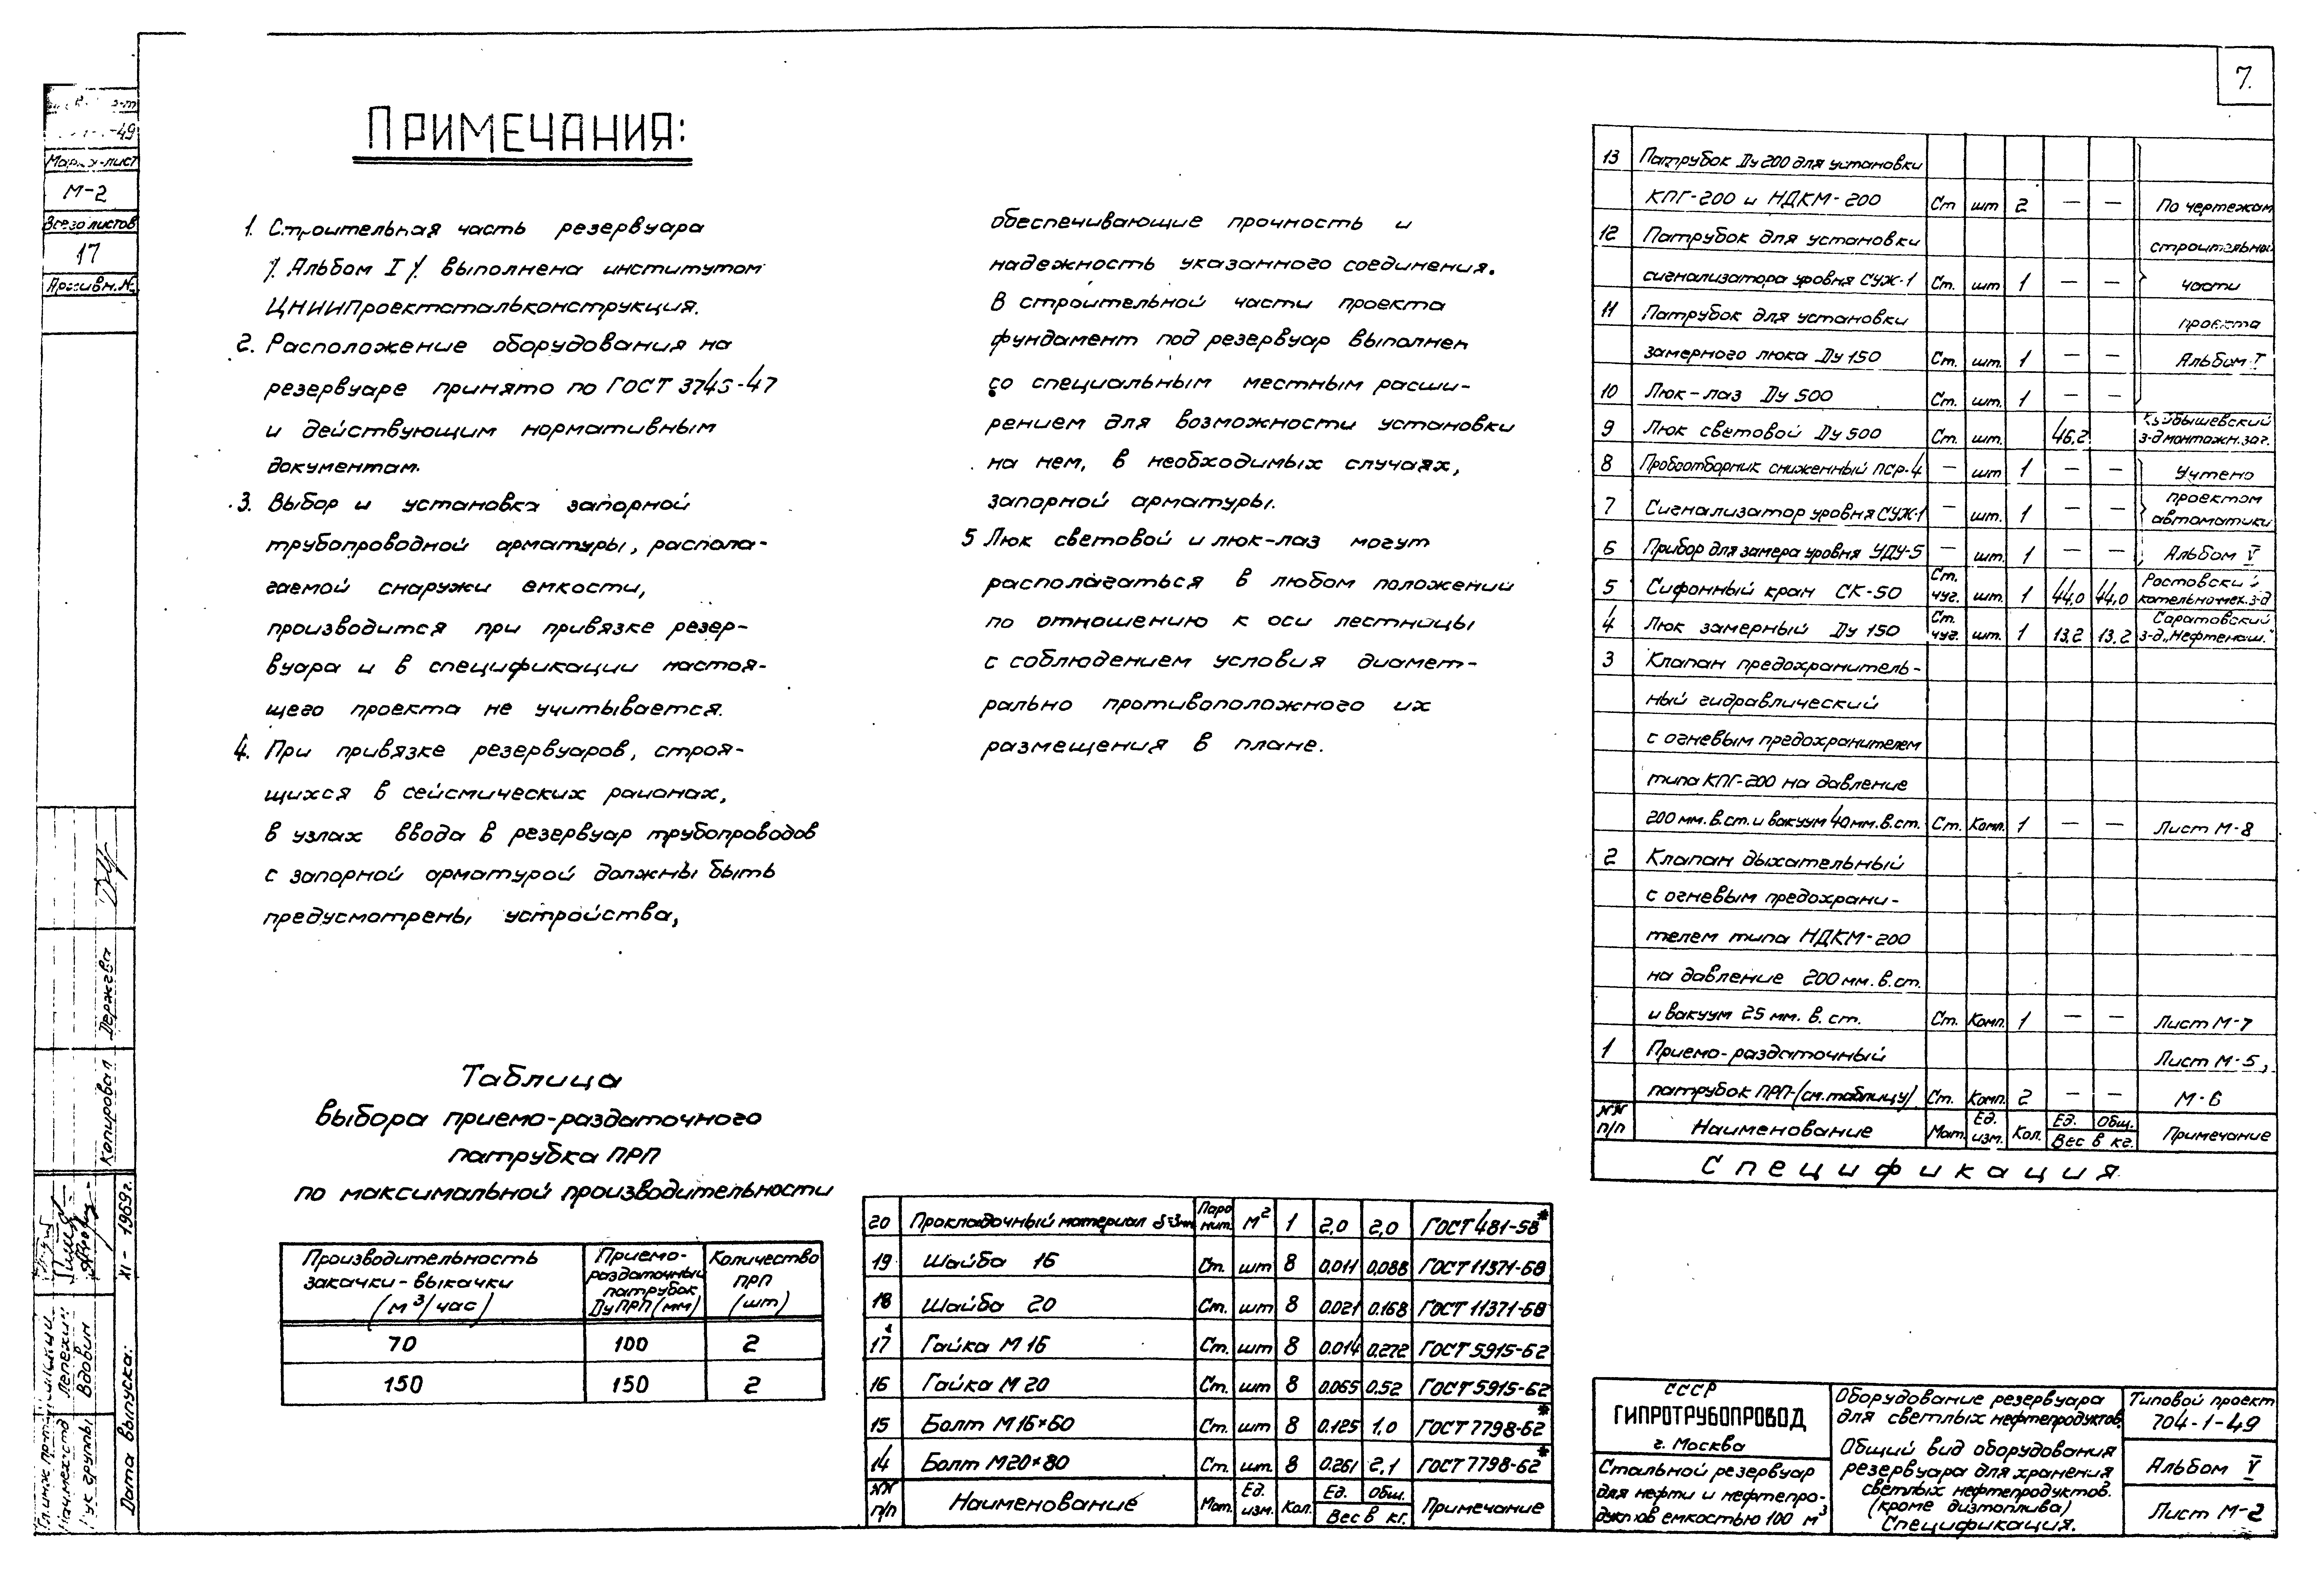 7.
-49
Марка-лист
М-2
Всего листов
17
Архивн.№
ПРИМЕЧАНИЯ:
1. Строительная часть резервуара
/. Альбом I /. выполнена институтом
ЦНИИПроектстальконструкция.
2. Расположение оборудования на
резервуаре принято по ГОСТ 3745-47
и действующим нормативным
документам.
3. Выбор и установка запорной
трубопроводной арматуры, распола-
гаемой снаружи емкости,
производится при привязке резер-
вуара и в спецификации настоя-
щего проекта не учитывается.
4. При привязке резервуаров, строя-
щихся в сейсмических районах,
в узлах ввода в резервуар трубопроводов
с запорной арматурой должны быть
предусмотрены устройства,
обеспечивающие прочность и
надежность указанного соединения.
В строительной части проекта
фундамент под резервуар выполнен
со специальным местным расши-
рением для возможности установки
на нем, в необходимых случаях,
запорной арматуры.
5 Люк световой и люк-лаз могут
располагаться в любом положении
по отношению к оси лестницы
с соблюдением условия диамет-
рально противоположного их
размещения в плане.
Таблица
выбора приемо-раздаточного
патрубка ПРП
по максимальной производительности
Производительность закачки-выкачки (м³/час) Приемо-раздаточный патрубок Ду ПРП (мм) Количество ПРП (шт)
70 100 2
150 150 2
20 Прокладочный материал δ=3мм Паро нит. м² 1 2,0 2,0 ГОСТ 481-58*
19 Шайба 16 Ст. шт 8 0,011 0,088 ГОСТ 11371-68
18 Шайба 20 Ст. шт 8 0.021 0.168 ГОСТ 11371-68
17 Гайка М 16 Ст. шт 8 0.014 0.272 ГОСТ 5915-62
16 Гайка М 20 Ст. шт 8 0.065 0.52 ГОСТ 5915-62
15 Болт М16×60 Ст. шт 8 0.125 1,0 ГОСТ 7798-62*
14 Болт М20×80 Ст. шт. 8 0.261 2,1 ГОСТ 7798-62*
NN п/п Наименование Мат. Ед. изм. Кол. Ед. Общ. Вес в кг. Примечание
13 Патрубок Ду 200 для установки
КПГ-200 и НДКМ-200 Ст шт 2 — — По чертежам
12 Патрубок для установки строительной
сигнализатора уровня СУЖ-1 Ст. шт 1 — — части
11 Патрубок для установки проекта
замерного люка Ду 150 Ст. шт. 1 — — Альбом I
10 Люк-лаз Ду 500 Ст. шт. 1 — —
9 Люк световой Ду 500 Ст. шт. 46,2 Куйбышевский з-д монтажн. заг.
8 Пробоотборник сниженный ПСР-4 — шт 1 — — Учтено
7 Сигнализатор уровня СУЖ-1 — шт. 1 — — проектом автоматики
6 Прибор для замера уровня УДУ-5 — шт. 1 — — Альбом V
5 Сифонный кран СК-50 Ст. чуг. шт. 1 44,0 44,0 Ростовский котельномех. з-д
4 Люк замерный Ду 150 Ст. чуг. шт. 1 13,2 13,2 Саратовский з-д „Нефтемаш."
3 Клапан предохранитель-
ный гидравлический
с огневым предохранителем
типа КПГ-200 на давление
200 мм. в.ст. и вакуум 40 мм. в.ст. Ст. Комп. 1 — — Лист М-8
2 Клапан дыхательный
с огневым предохрани-
телем типа НДКМ-200
на давление 200 мм. в.ст.
и вакуум 25 мм. в. ст. Ст. Комп. 1 — — Лист М-7
1 Приемо-раздаточный Лист М-5,
патрубок ПРП-(см.таблицу) Ст. Комп. 2 — — М-6
NN п/п Наименование Мат. Ед. изм. Кол. Ед. Общ. Вес в кг. Примечание
Спецификация
СССР
ГИПРОТРУБОПРОВОД
г. Москва
Стальной резервуар
для нефти и нефтепро-
дуктов емкостью 100 м³
Оборудование резервуара
для светлых нефтепродуктов.
Общий вид оборудования
резервуара для хранения
светлых нефтепродуктов.
(кроме дизтоплива)
Спецификация.
Типовой проект
704-1-49
Альбом V
Лист М-2
Копировал Держгва
Гл. инж. пр-та
Нач. мех. отд Лепекин
Рук группы Вдовин
Дата выпуска: XI- 1969г.